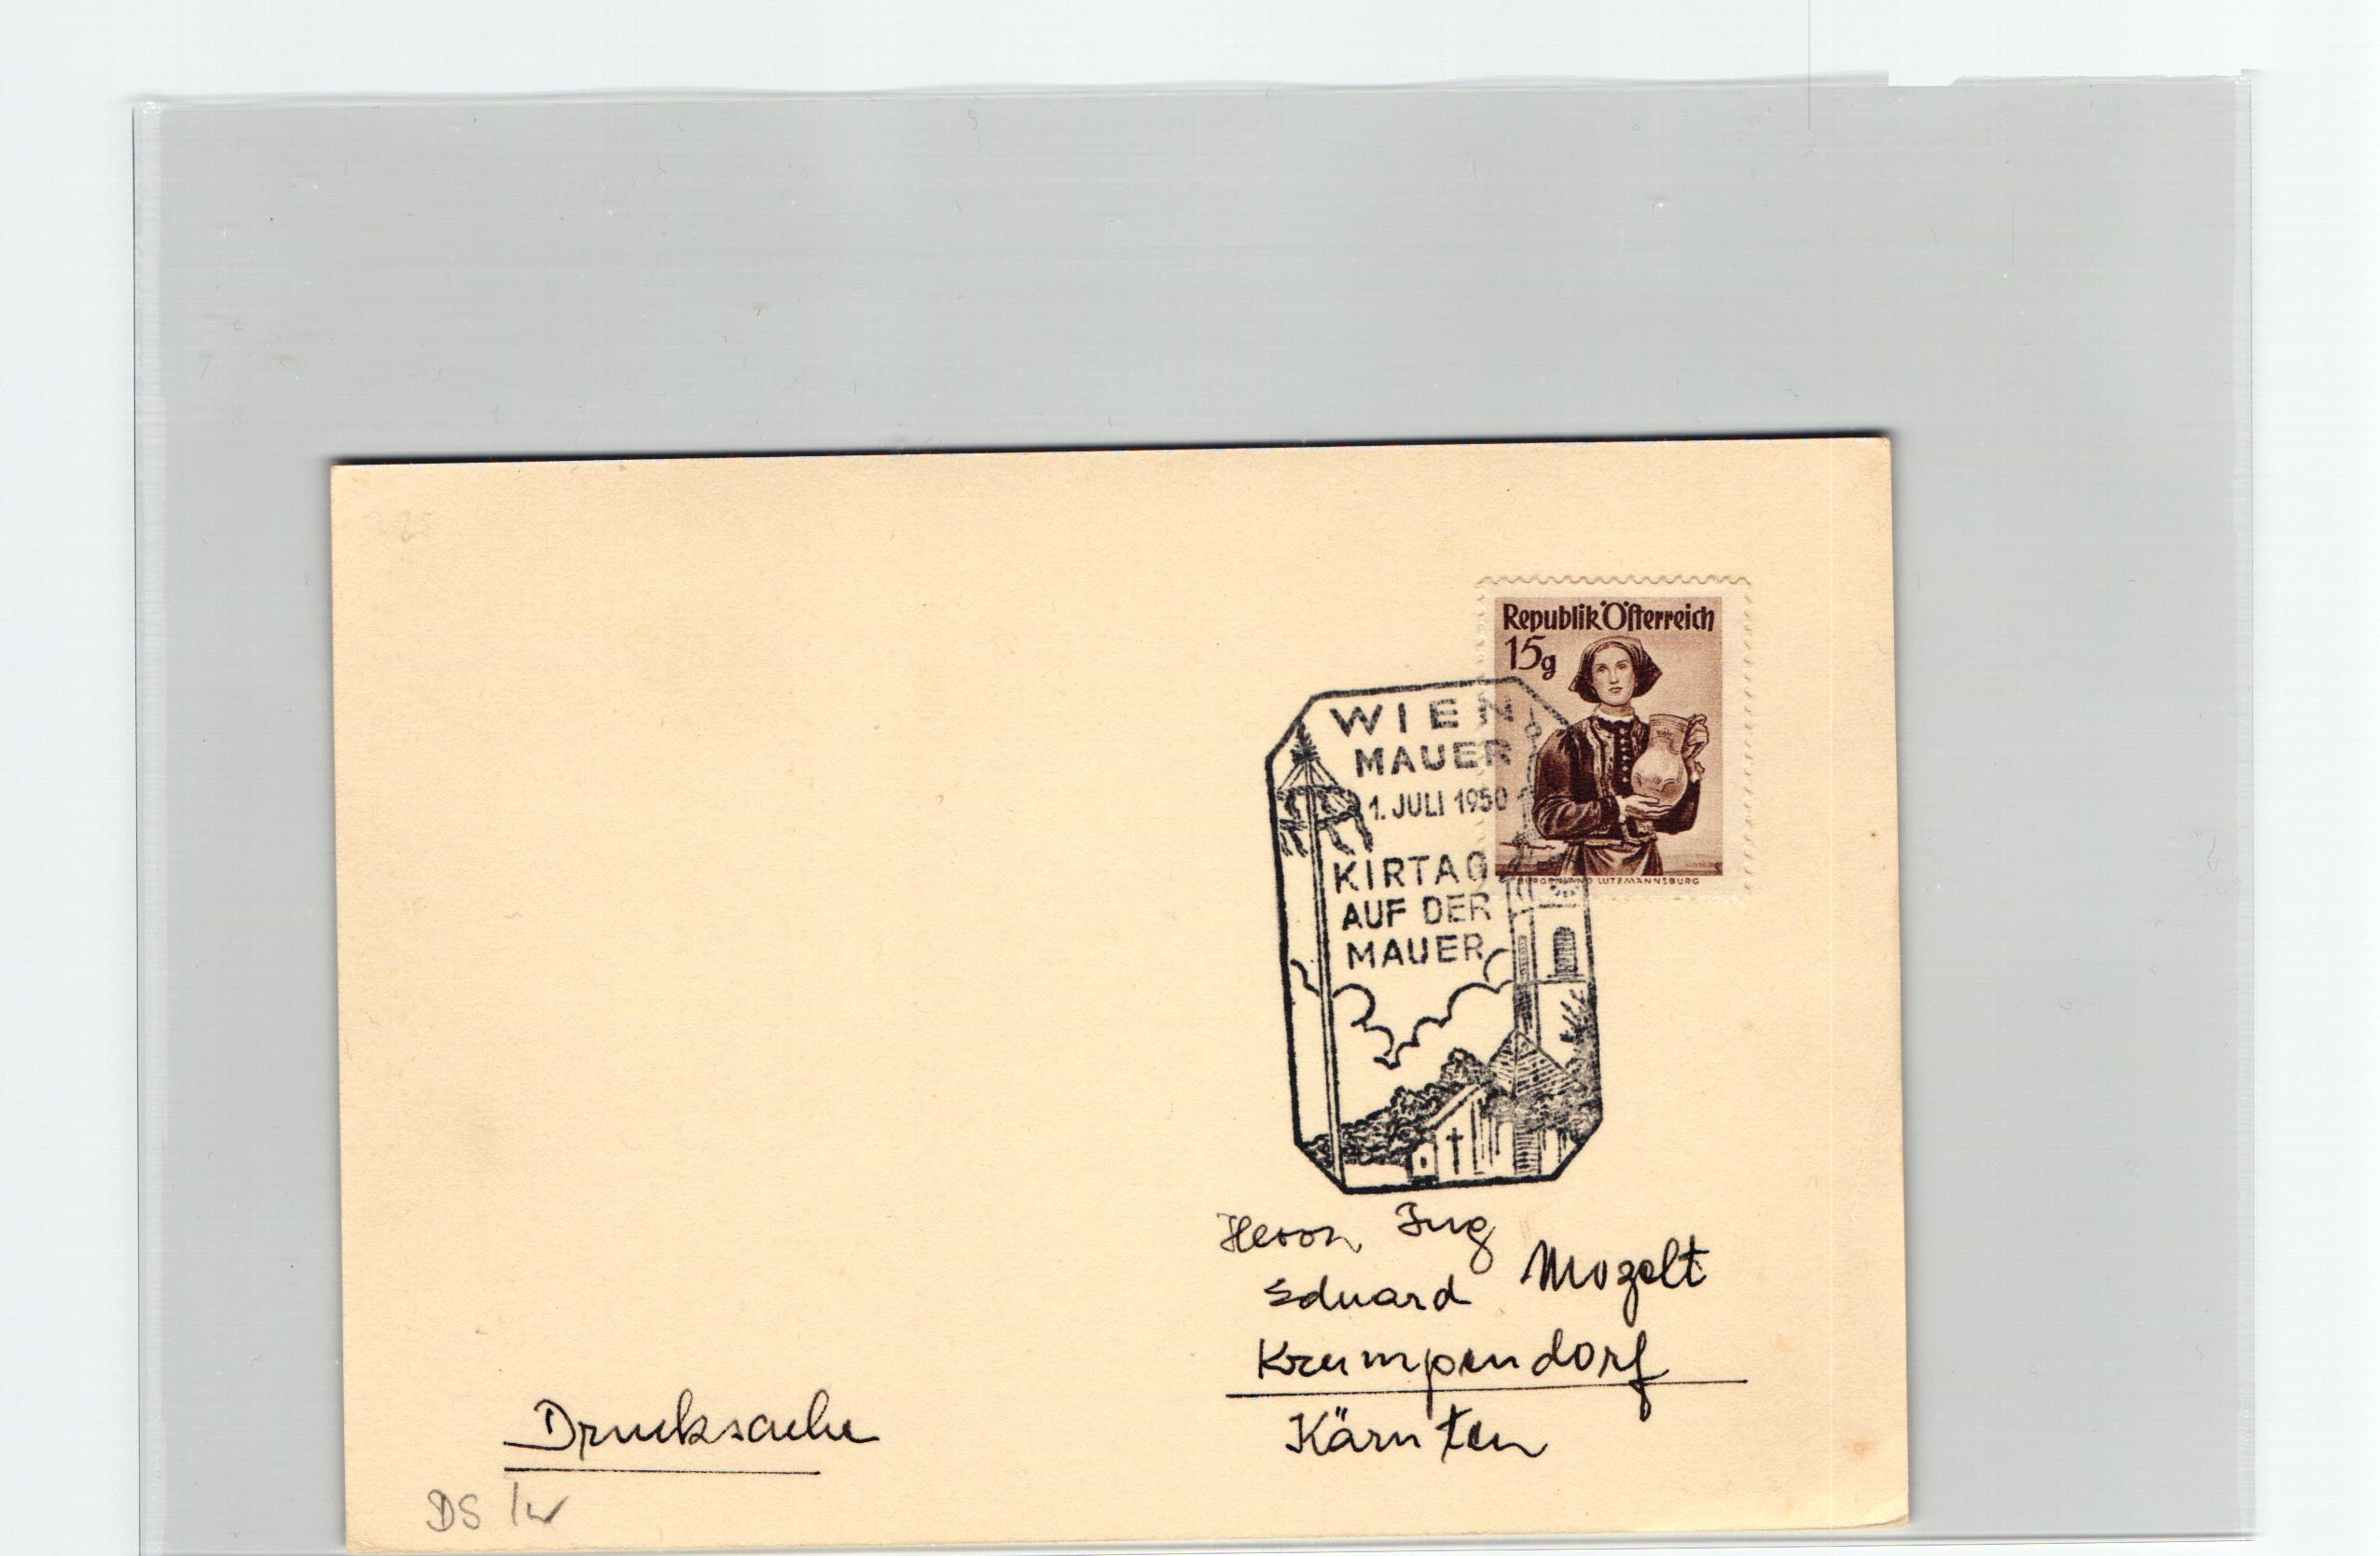 Republik Österreich
15g
BURGENLAND LUTZMANNSBURG
WIEN
MAUER
1. JULI 1950
KIRTAG
AUF DER
MAUER
Herrn Ing
Eduard Mozelt
Krumpendorf
Kärnten
Drucksache
DS